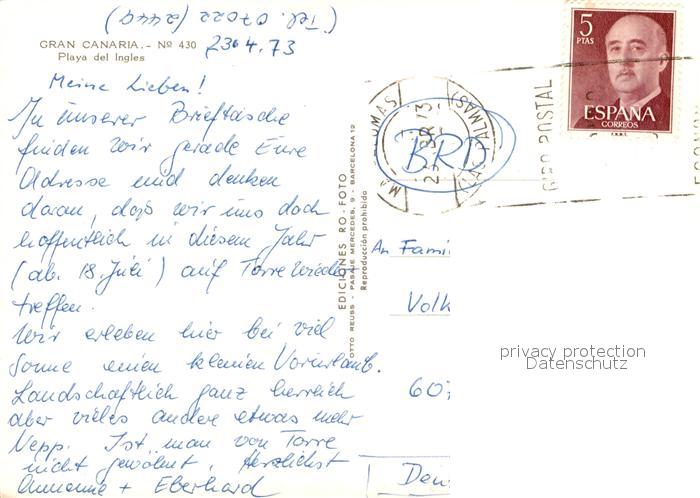 (Tel. 07022/2449)
GRAN CANARIA.- Nº 430
Playa del Ingles
23.4.73
Meine Lieben!
In unserer Brieftasche
finden wir gerade Eure
Adresse und denken
daran, daß wir uns doch
hoffentlich in diesem Jahr
(ab. 18. Juli) auf Torre wieder
treffen.
Wir erleben hier bei viel
Sonne einen kleinen Vorurlaub.
Landschaftlich ganz herrlich
aber vieles andere etwas mehr
Nepp. Ist man von Torre
nicht gewöhnt. Herzlichst
Annemie + Eberhard
EDICIONES RO-FOTO
OTTO REUSS - PASAJE MERCEDES, 9 - BARCELONA 12
Reproducción prohibida
5
PTAS
ESPAÑA
CORREOS
F.N.M.T.
PALMAS)
GIRO POSTAL
BRD
An Fami
Volk
60
Deu
privacy protection
Datenschutz